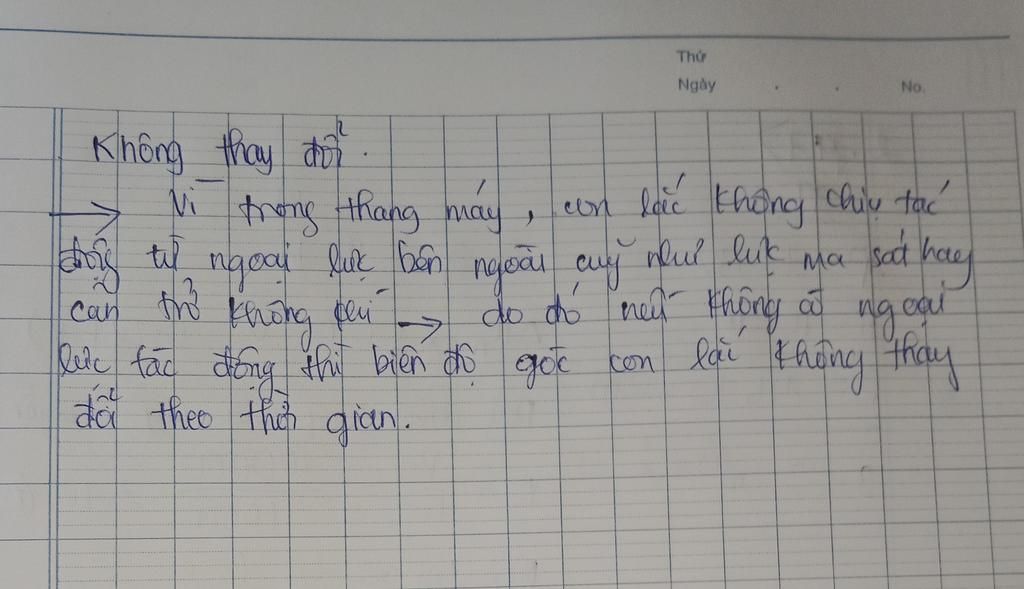 Thứ
Ngày . . No.
Không thay đổi.
→ Vì trong thang máy, con lắc không chịu tác
động từ ngoại lực bên ngoài như lực ma sát hay
cản trở không khí → do đó nếu không có ngoại
lực tác động thì biên độ góc con lắc không thay
đổi theo thời gian.